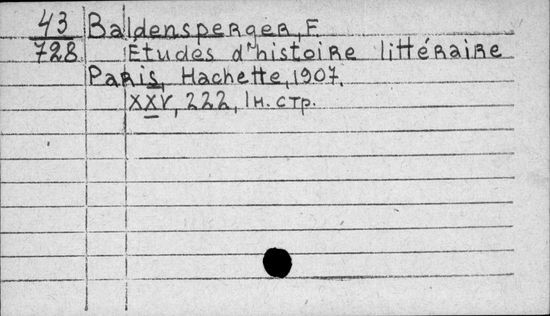 43 Baldensperger, F.
728 Études d'histoire littéraire
Paris, Hachette, 1907.
XXV, 222, 1 н. стр.